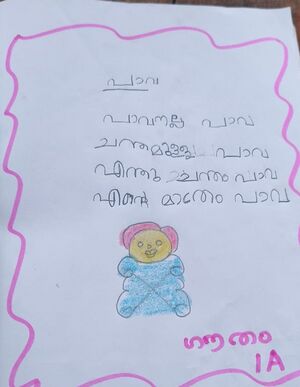 പാവ
പാവനല്ല പാവ
ചന്തമുള്ള പാവ
എന്തു ചന്തം പാവ
എന്റെ മാത്രം പാവ
ഗൗതം
1A